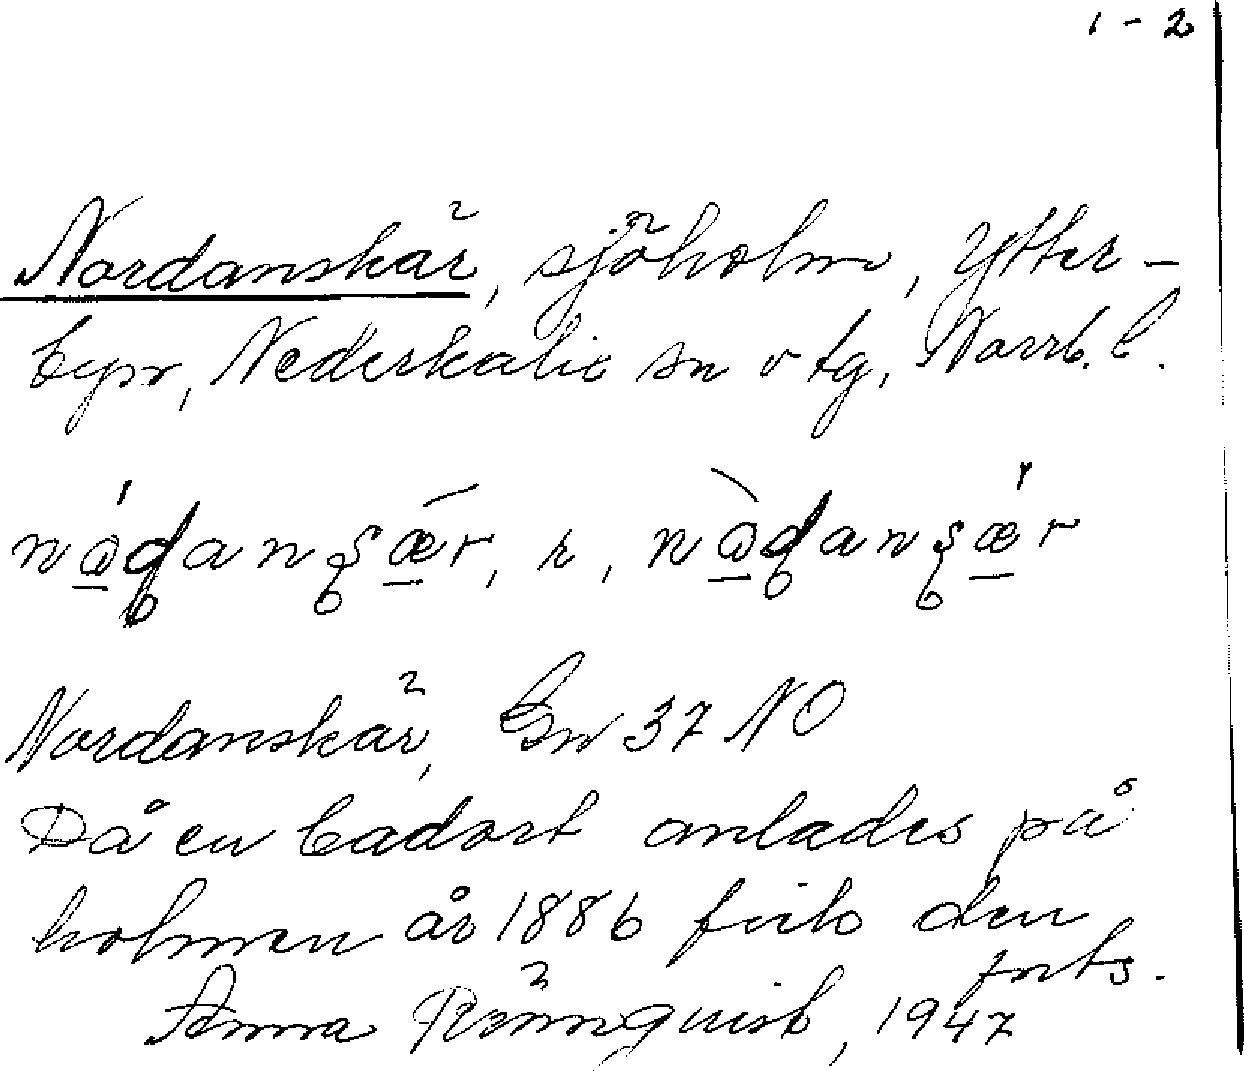 1 - 2
Nordanskär, sjöholm, Ytter-
byn, Nederkalix sn o tg, Norrb. l.
Nordanskär, Gn 37 NO
Då en badort anlades på
holmen år 1886 fick den
forts.
Anna Rönnquist, 1947